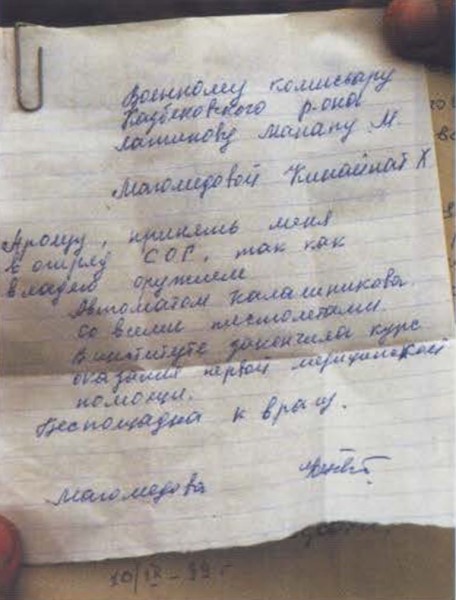 Военному комиссару
Казбековского р-она
Латипову Манапу М.
Магомедовой Х
Прошу, принять меня
в отряд СОГ, так как
владею оружием
Автоматом Калашникова.
со всеми пистолетами.
В институте закончила курс
оказания первой медицинской
помощи.
Беспощадна к врагу.
Магомедова
10/IX-99 г